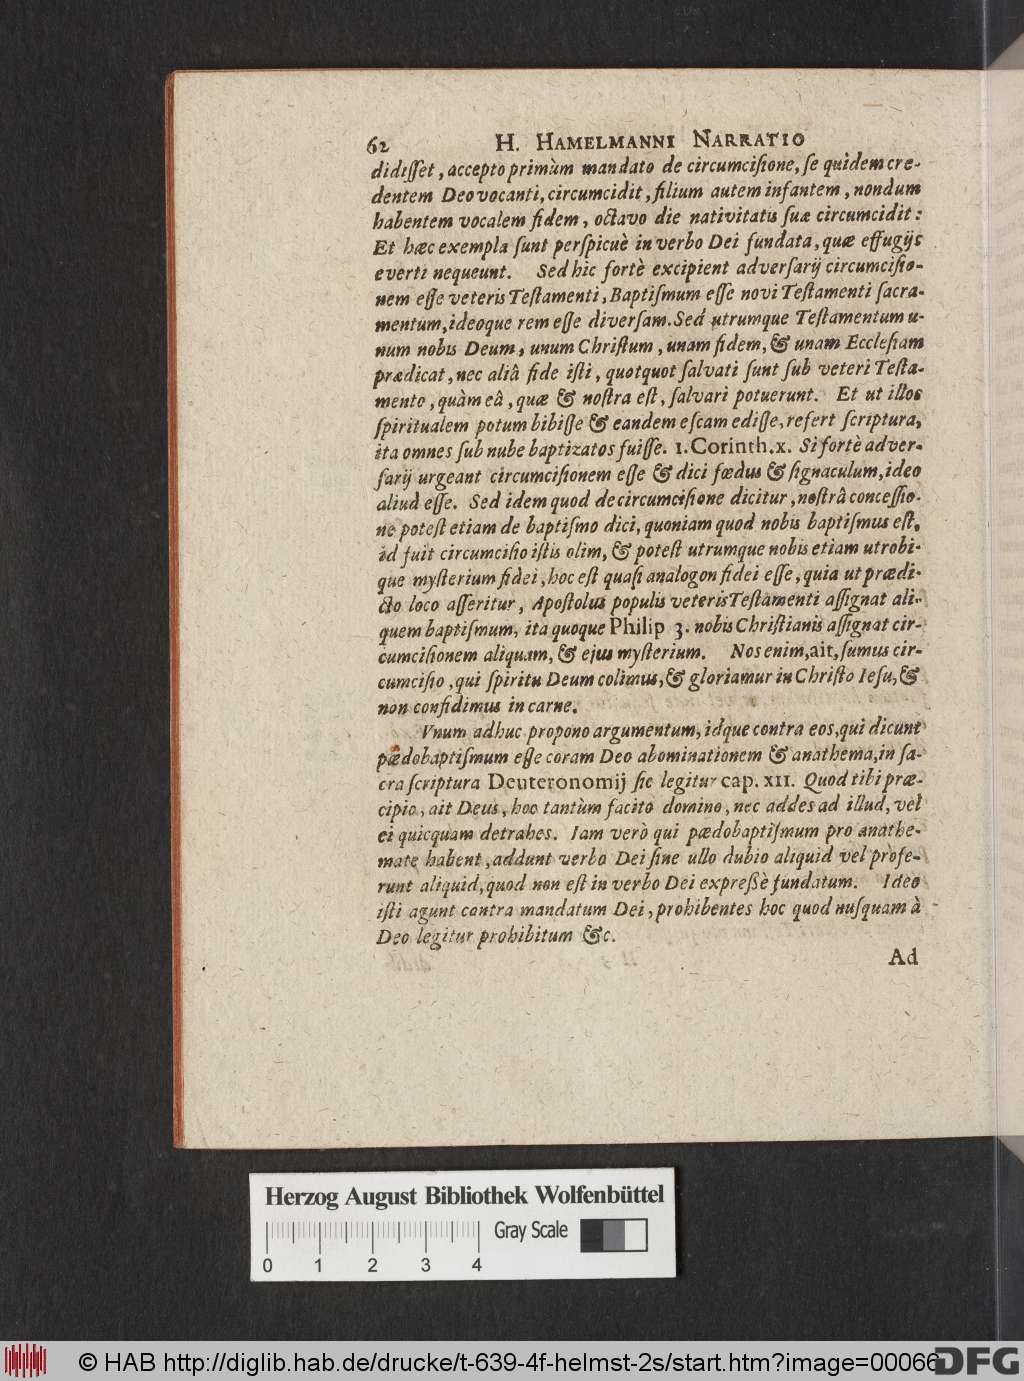 62 H. HAMELMANNI NARRATIO
didiſſet, accepto primùm mandato de circumciſione, ſe quidem cre-
dentem Deo vocanti, circumcidit, filium autem infantem, nondum
habentem vocalem fidem, octavo die nativitatis ſuæ circumcidit:
Et hæc exempla ſunt perſpicuè in verbo Dei fundata, quæ effugijs
everti nequeunt. Sed hic fortè excipient adverſarij circumciſio-
nem eſſe veteris Teſtamenti, Baptiſmum eſſe novi Teſtamenti ſacra-
mentum, ideoque rem eſſe diverſam. Sed utrumque Teſtamentum u-
num nobis Deum, unum Chriſtum, unam fidem, & unam Eccleſiam
prædicat, nec aliâ fide iſti, quotquot ſalvati ſunt ſub veteri Teſta-
mento, quàm eâ, quæ & noſtra eſt, ſalvari potuerunt. Et ut illos
ſpiritualem potum bibiſſe & eandem eſcam ediſſe, refert ſcriptura,
ita omnes ſub nube baptizatos fuiſſe. 1. Corinth. x. Si fortè adver-
ſarij urgeant circumciſionem eſſe & dici fœdus & ſignaculum, ideo
aliud eſſe. Sed idem quod de circumciſione dicitur, noſtrâ conceſſio-
ne poteſt etiam de baptiſmo dici, quoniam quod nobis baptiſmus eſt,
id fuit circumciſio iſtis olim, & poteſt utrumque nobis etiam utrobi-
que myſterium fidei, hoc eſt quaſi analogon fidei eſſe, quia ut prædi-
cto loco aſſeritur, Apoſtolus populis veteris Teſtamenti aſſignat ali-
quem baptiſmum, ita quoque Philip 3. nobis Chriſtianis aſſignat cir-
cumciſionem aliquam, & ejus myſterium. Nos enim, ait, ſumus cir-
cumciſio, qui ſpiritu Deum colimus, & gloriamur in Chriſto Ieſu, &
non confidimus in carne.
Vnum adhuc propono argumentum, idque contra eos, qui dicunt
pædobaptiſmum eſſe coram Deo abominationem & anathema, in ſa-
cra ſcriptura Deuteronomij ſic legitur cap. XII. Quod tibi præ-
cipio, ait Deus, hoc tantùm facito domino, nec addes ad illud, vel
ei quicquam detrahes. Iam verò qui pædobaptiſmum pro anathe-
mate habent, addunt verbo Dei ſine ullo dubio aliquid vel profe-
runt aliquid, quod non eſt in verbo Dei expreßè fundatum. Ideo
iſti agunt contra mandatum Dei, prohibentes hoc quod nuſquam à
Deo legitur prohibitum &c.
Ad
Herzog August Bibliothek Wolfenbüttel
Gray Scale
0 1 2 3 4
© HAB http://diglib.hab.de/drucke/t-639-4f-helmst-2s/start.htm?image=00066
DFG